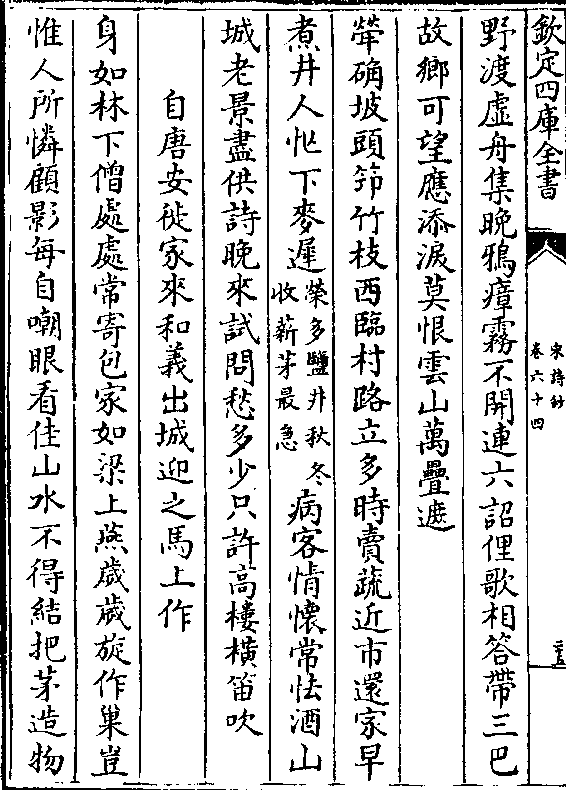 欽定四庫全書
宋詩鈔
卷六十四
二五
野渡虛舟集晚鴉瘴霧不開連六詔俚歌相答帶三巴
故鄉可望應添淚莫恨雲山萬疊遮
犖确坡頭筇竹枝西臨村路立多時賣蔬近市還家早
煮井人忙下麥遲榮多鹽井秋冬收薪茅最急病客情懷常怯酒山
城老景盡供詩晚來試問愁多少只許高樓橫笛吹
自唐安徙家來和義出城迎之馬上作
身如林下僧處處常寄包家如梁上燕歲歲旋作巢豈
惟人所憐顧影每自嘲眼看佳山水不得結把茅造物